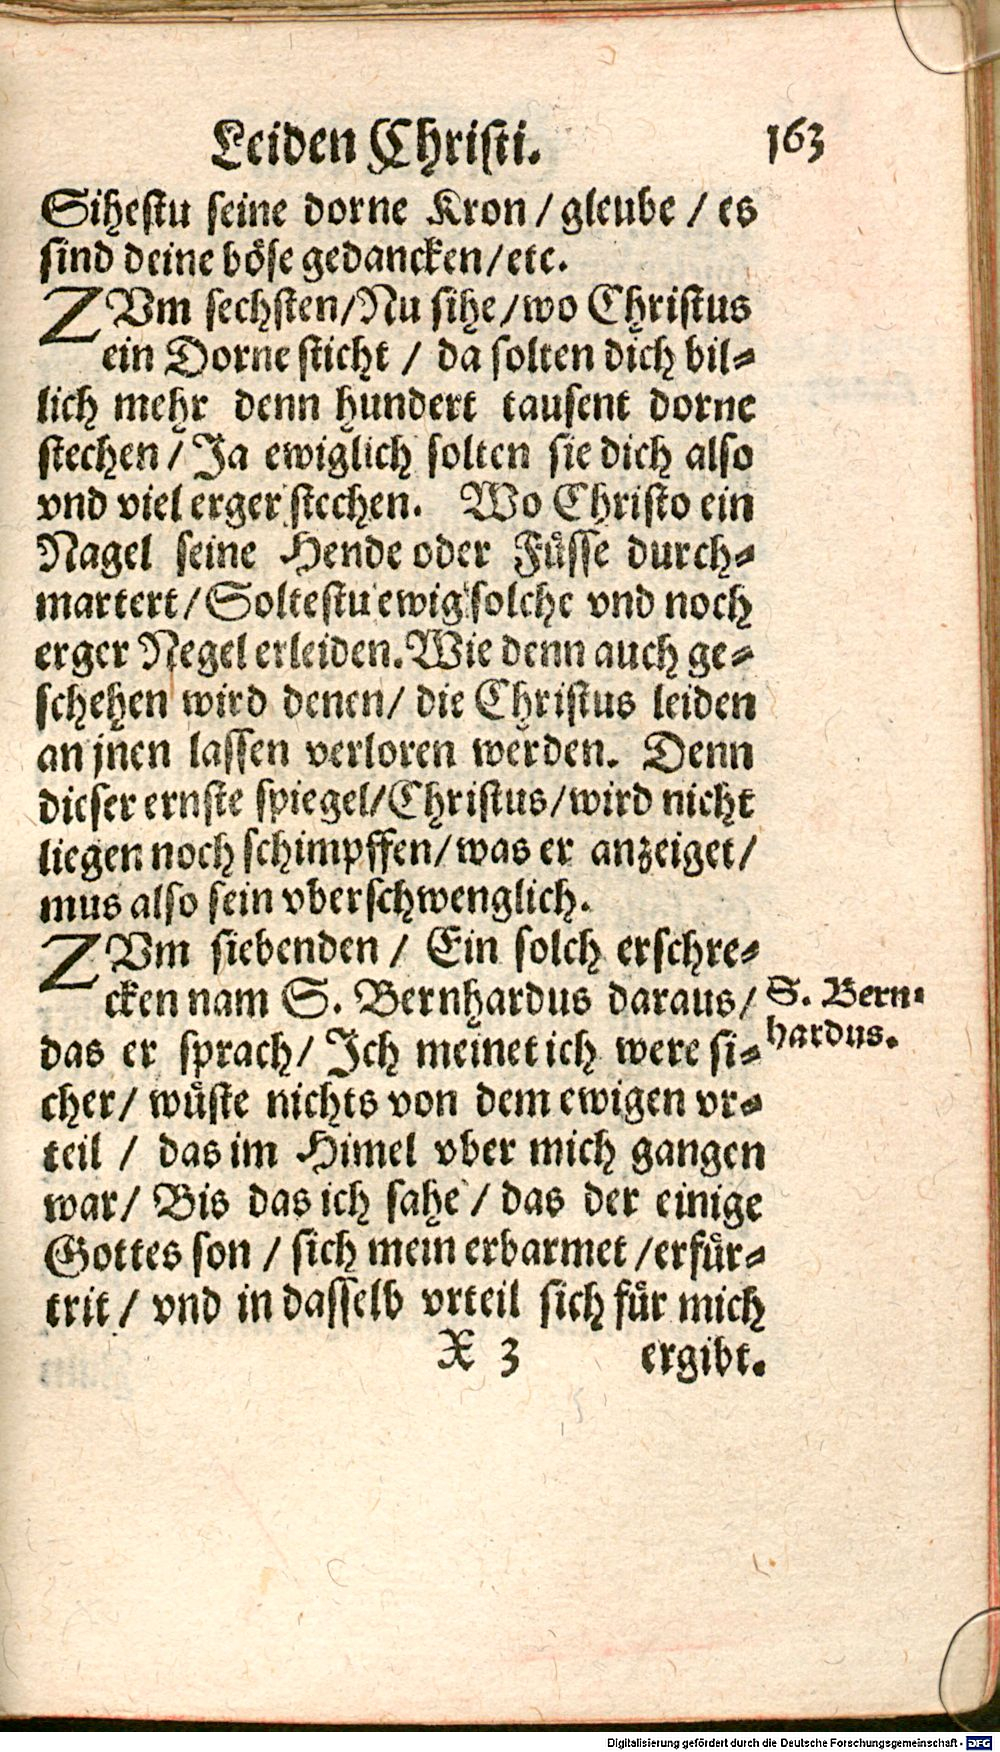 Leiden Christi. 163
Sihestu seine dorne Kron / gleube / es
sind deine böse gedancken / etc.
ZVm sechsten / Nu sihe / wo Christus
ein Dorne sticht / da solten dich bil-
lich mehr denn hundert tausent dorne
stechen / Ja ewiglich solten sie dich also
vnd viel erger stechen. Wo Christo ein
Nagel seine Hende oder Füsse durch-
martert / Soltestu ewig solche vnd noch
erger Negel erleiden. Wie denn auch ge-
schehen wird denen / die Christus leiden
an jnen lassen verloren werden. Denn
dieser ernste spiegel / Christus / wird nicht
liegen noch schimpffen / was er anzeiget /
mus also sein vberschwenglich.
ZVm siebenden / Ein solch erschre-
cken nam S. Bernhardus daraus /
S. Bern-
hardus.
das er sprach / Ich meinet ich were si-
cher / wüste nichts von dem ewigen vr-
teil / das im Himel vber mich gangen
war / Bis das ich sahe / das der einige
Gottes son / sich mein erbarmet / erfür-
trit / vnd in dasselb vrteil sich für mich
X 3 ergibt.
Digitalisierung gefördert durch die Deutsche Forschungsgemeinschaft - DFG